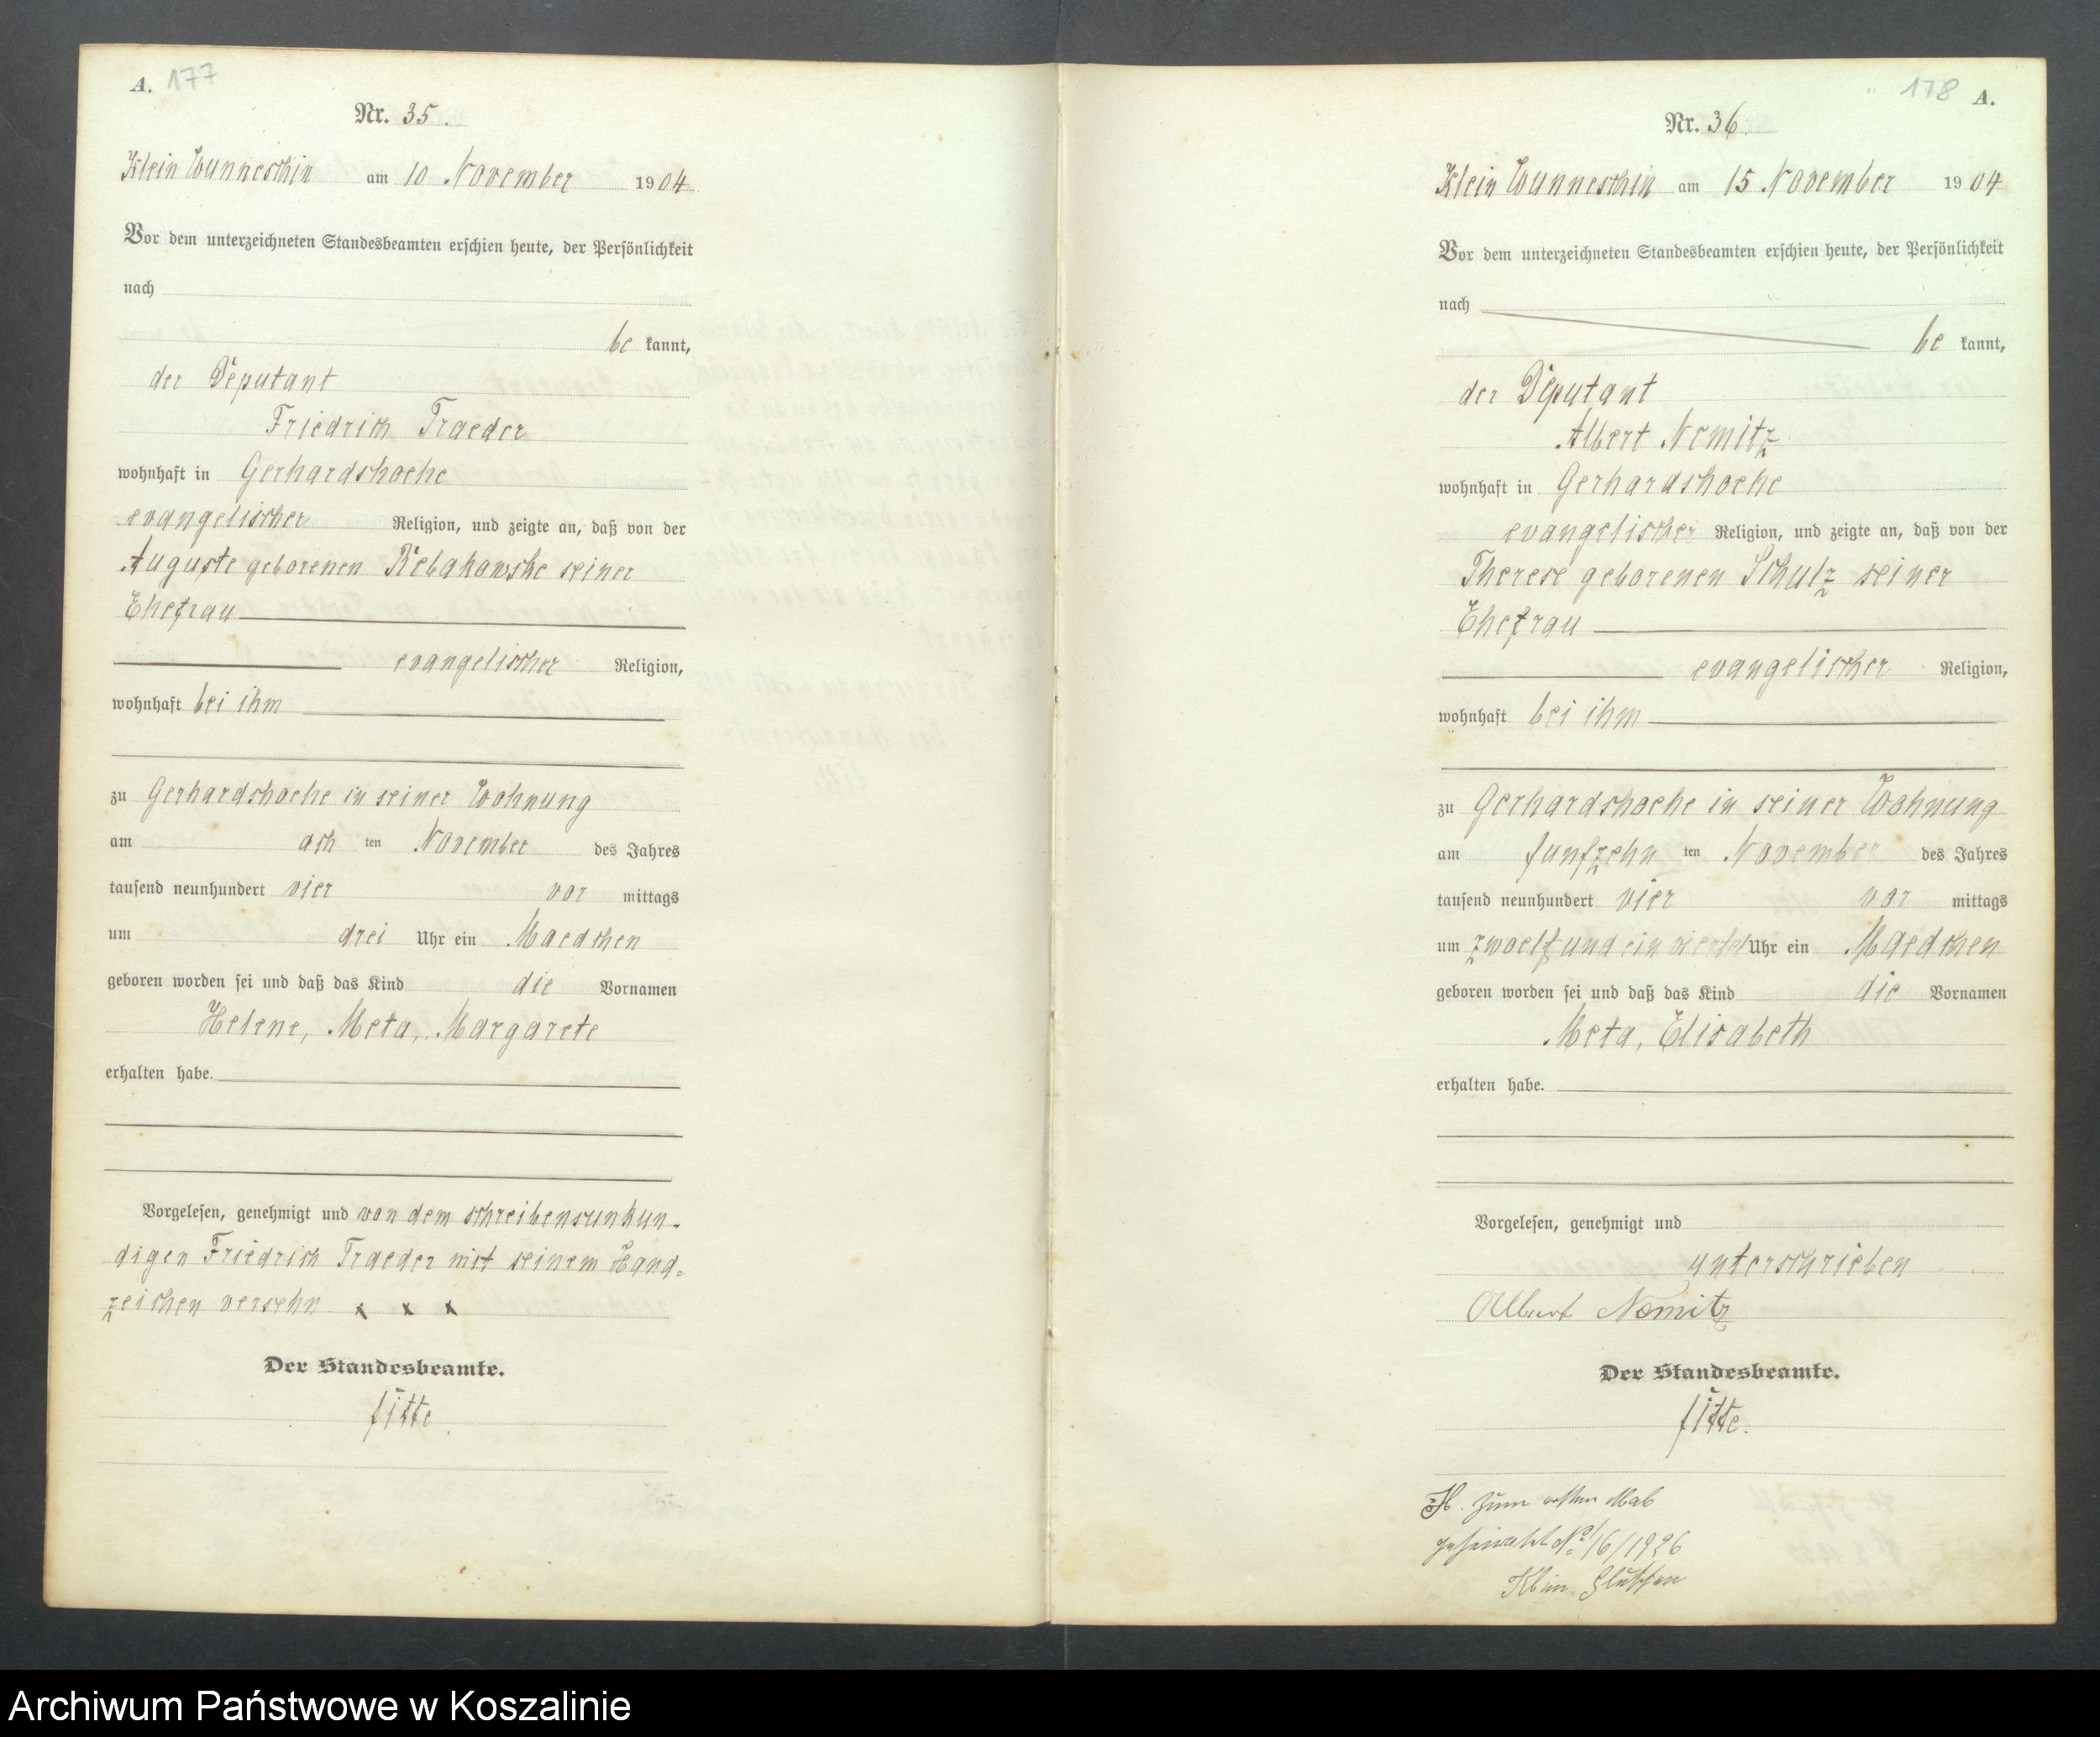 A. 177
Nr. 35.
Klein Wunneschin am 10 November 1904
Vor dem unterzeichneten Standesbeamten erschien heute, der Persönlichkeit
nach
be kannt,
der Deputant
Friedrich Traeder
wohnhaft in Gerhardshoehe
evangelischer Religion, und zeigte an, daß von der
Auguste geborenen seiner
Ehefrau
evangelischer Religion,
wohnhaft bei ihm
zu Gerhardshoehe in seiner Wohnung
am ach ten November des Jahres
tausend neunhundert vier vor mittags
um drei Uhr ein Maedchen
geboren worden sei und daß das Kind die Vornamen
Helene, Meta, Margarete
erhalten habe.
Vorgelesen, genehmigt und von dem schreibensunkun-
digen Friedrich Traeder mit seinem Hand-
zeichen versehn x x x
Der Standesbeamte.
178 A.
Nr. 36.
Klein Wunneschin am 15 November 1904
Vor dem unterzeichneten Standesbeamten erschien heute, der Persönlichkeit
nach
be kannt,
der Deputant
Albert Nemitz
wohnhaft in Gerhardshoehe
evangelischer Religion, und zeigte an, daß von der
Therese geborenen Schulz seiner
Ehefrau
evangelischer Religion,
wohnhaft bei ihm
zu Gerhardshoehe in seiner Wohnung
am funfzehn ten November des Jahres
tausend neunhundert vier vor mittags
um zwoelf und ein viertel Uhr ein Maedchen
geboren worden sei und daß das Kind die Vornamen
Meta, Elisabeth
erhalten habe.
Vorgelesen, genehmigt und
unterschrieben
Albert Nemitz
Der Standesbeamte.
zum ersten Mal
geheiratet No 16/1926
Klein Gluschen
Archiwum Państwowe w Koszalinie